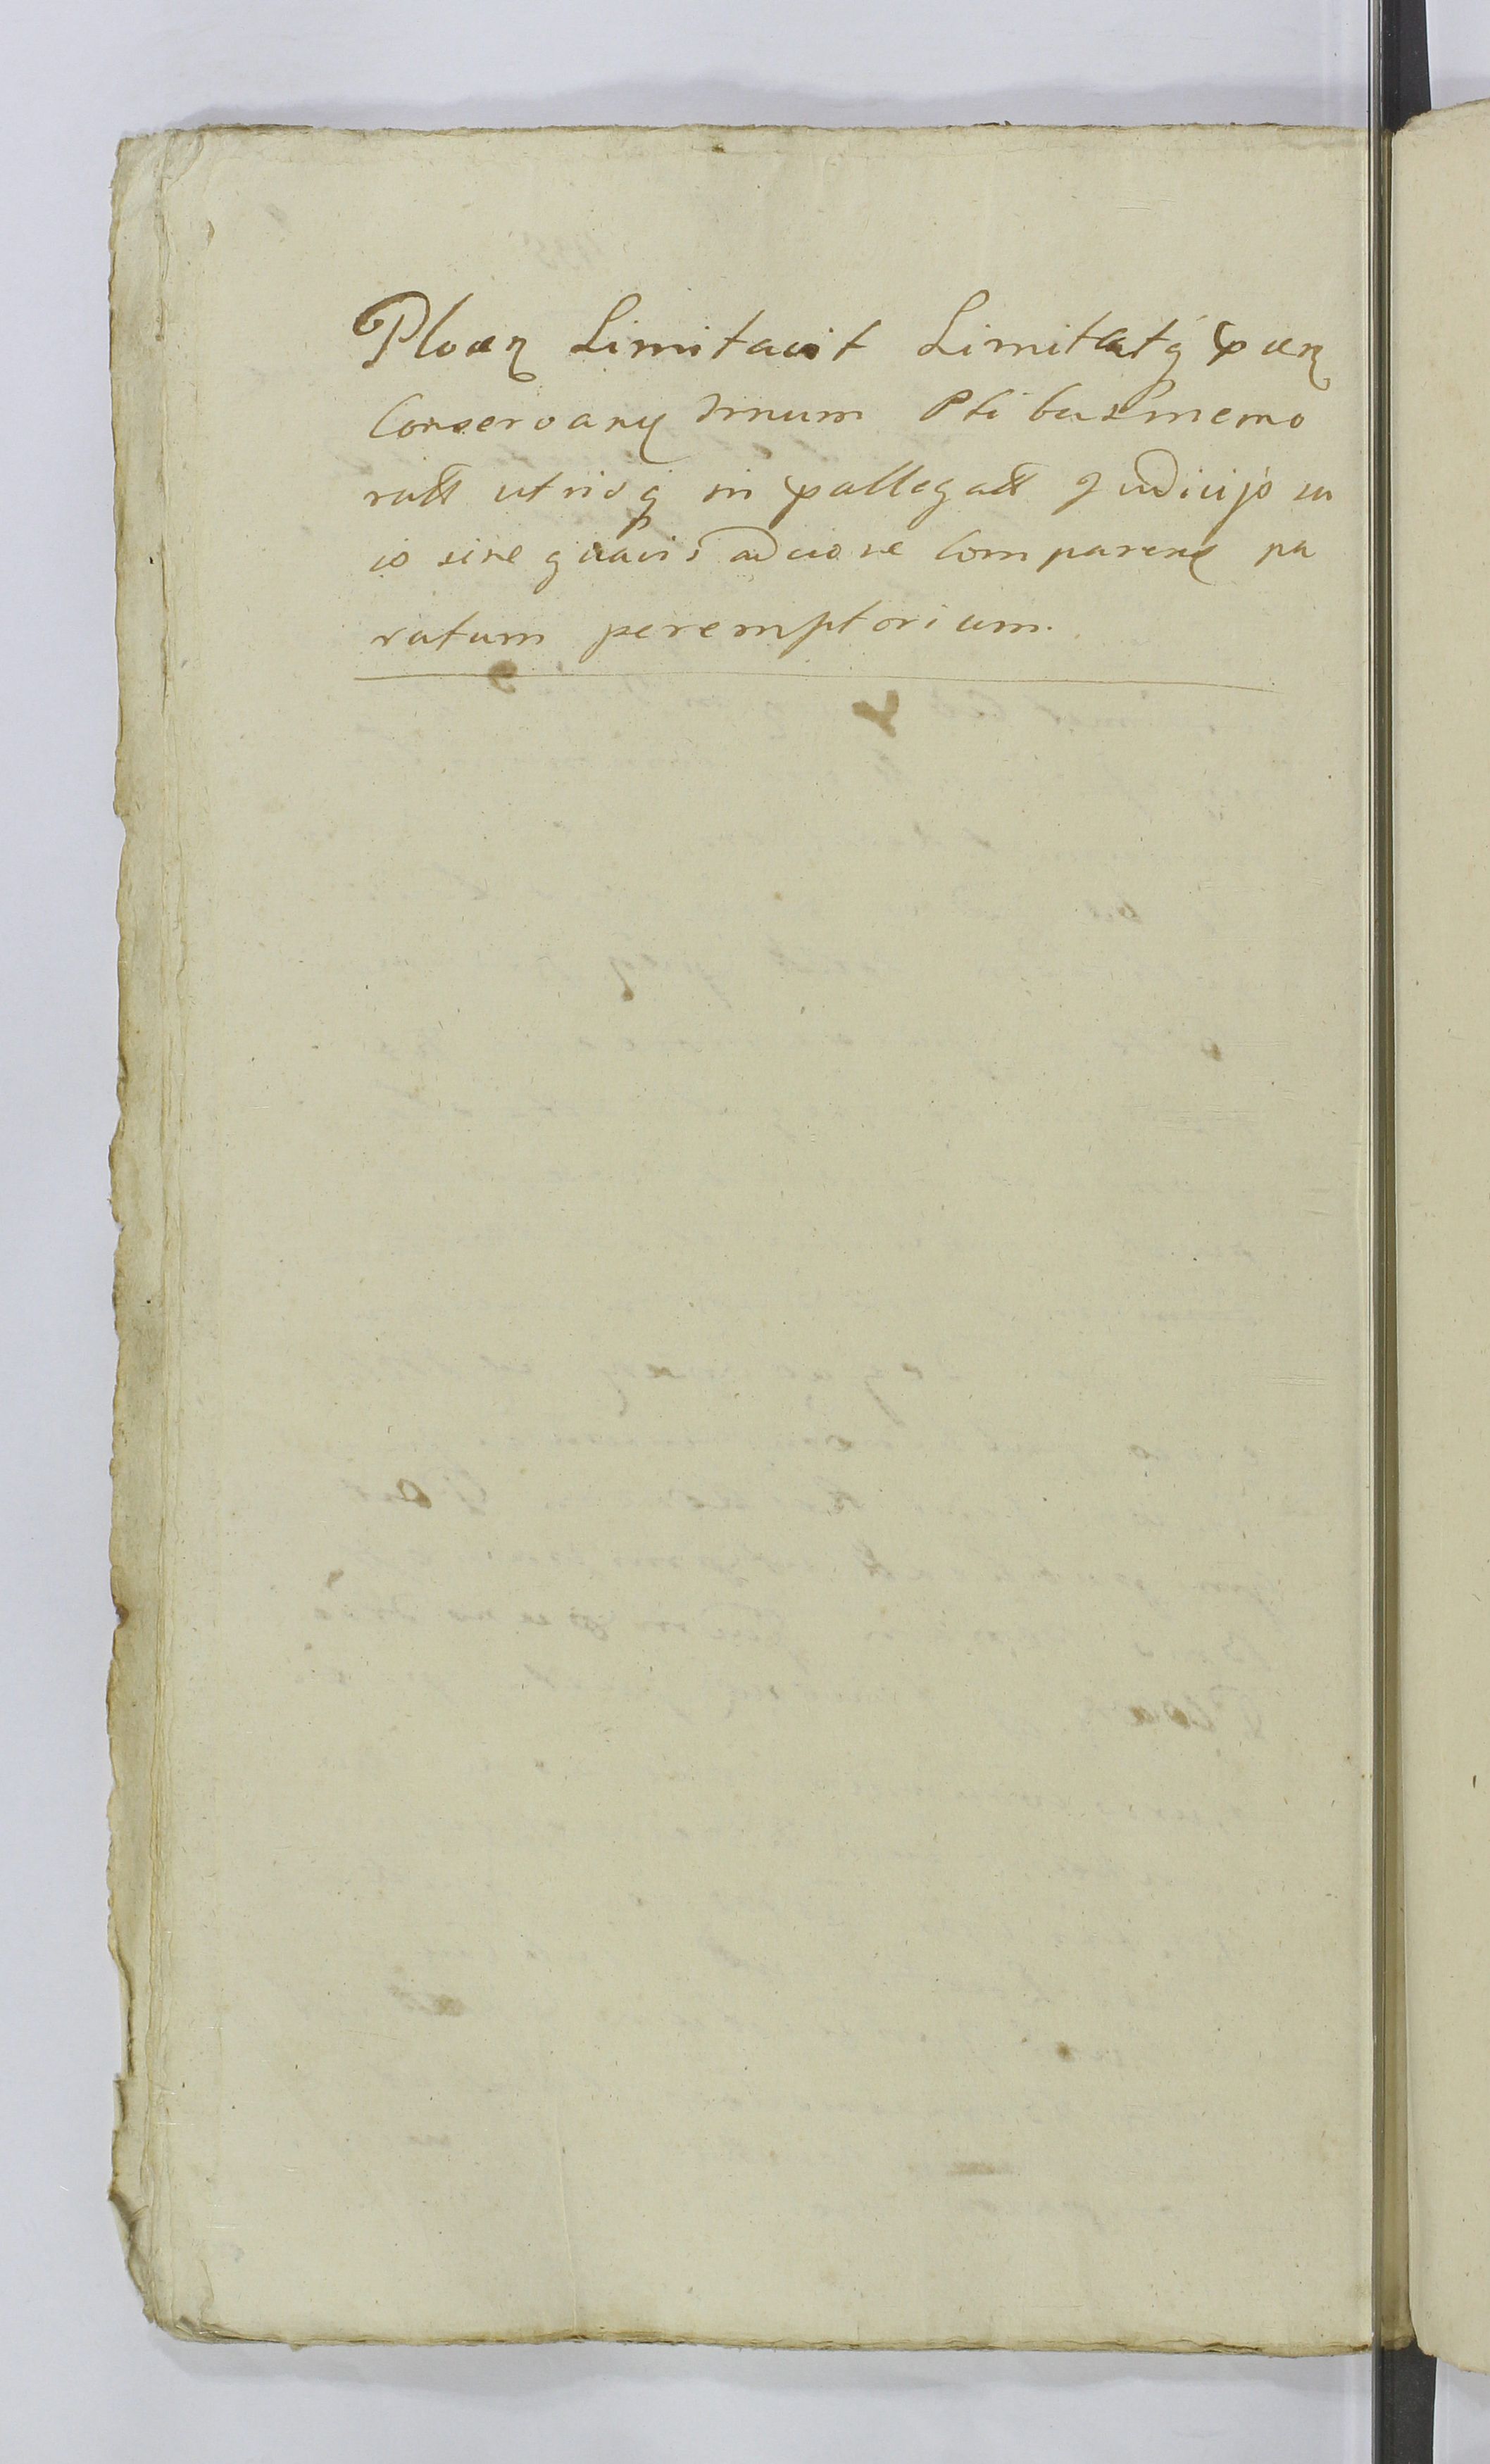 Ploaɳ Limitavit Limitatq̃ pxɳ
Conservanɖ tmnum Ptibus memo
ratt utrisq in pallegatt Judicijo su
o sine quavis advone Comparenɖ pa
ratum peremptorium.